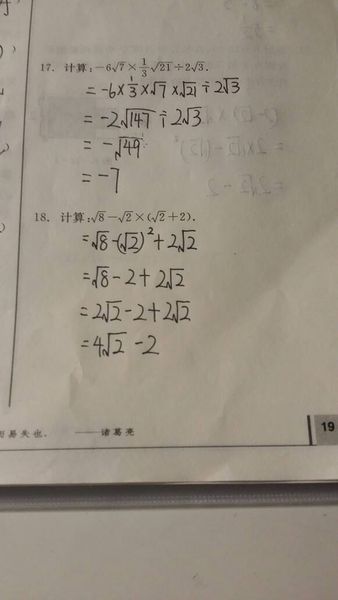 17. 计算:-6√7×1/3√21÷2√3.
=-6×1/3×√7×√21÷2√3
=-2√147÷2√3
=-√49
=-7
18. 计算:√8-√2×(√2+2).
=√8-(√2)²+2√2
=√8-2+2√2
=2√2-2+2√2
=4√2-2
而易失也. ——诸葛亮
19